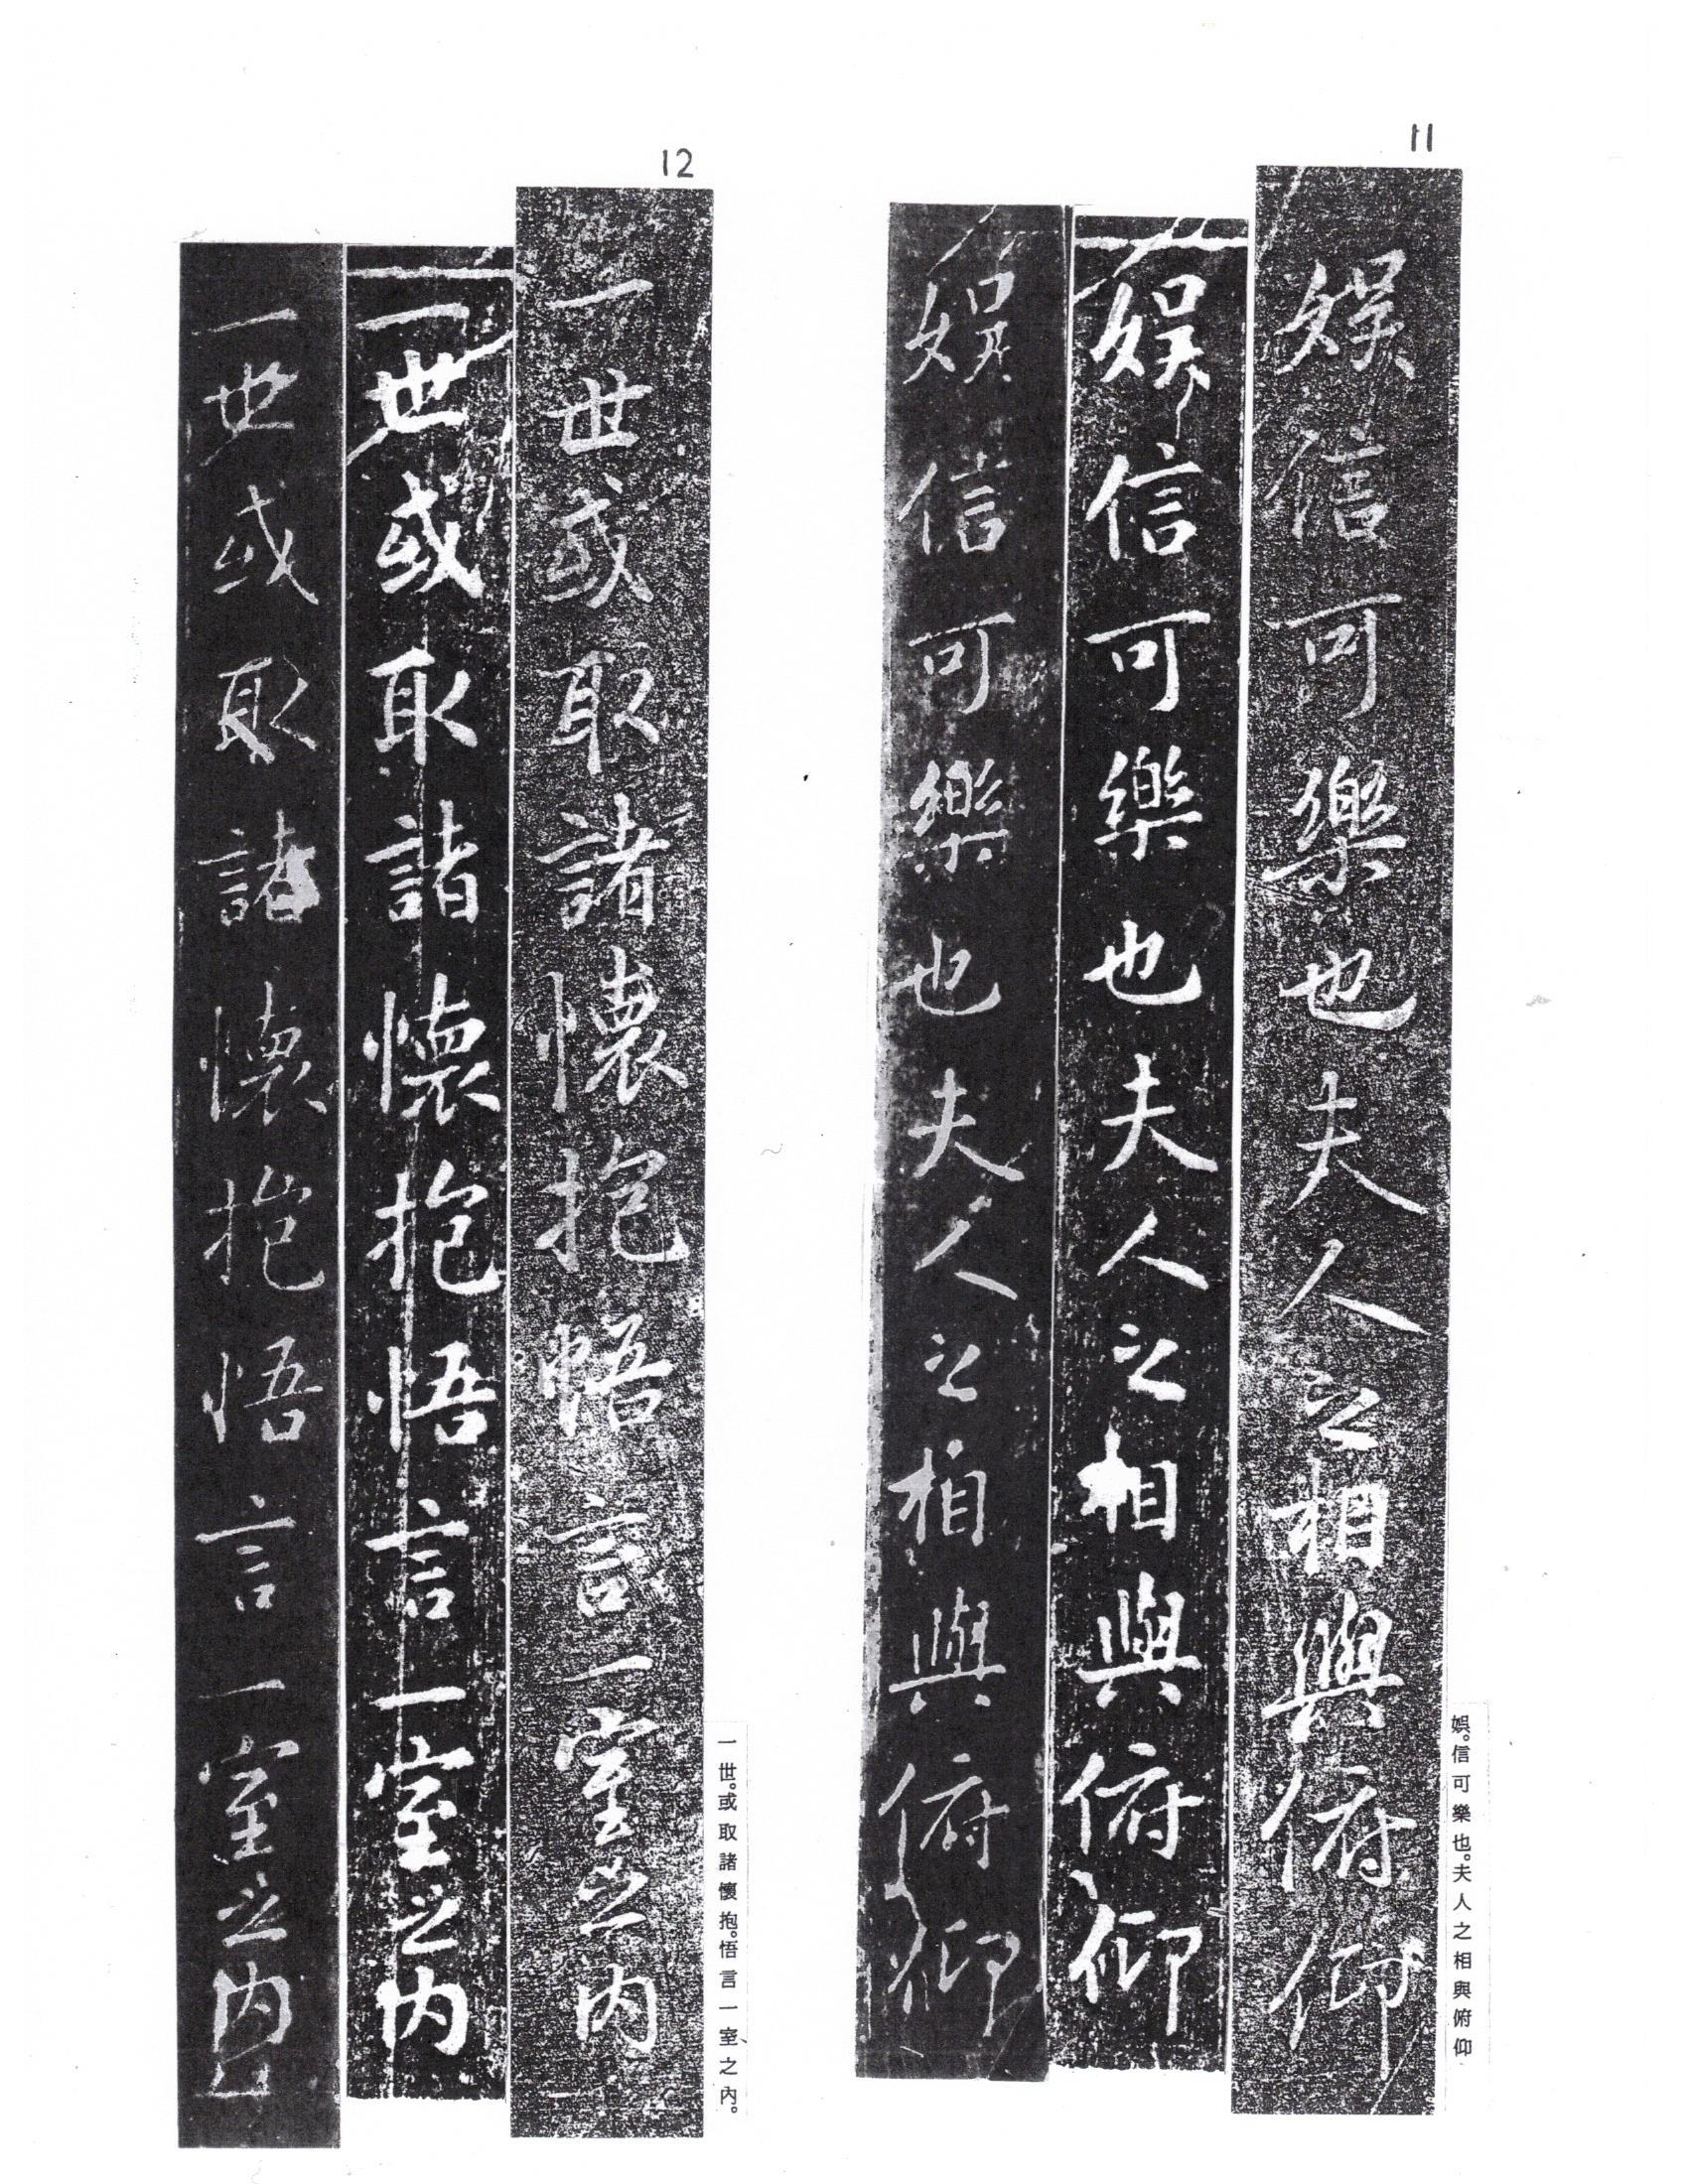 11
娯。信可樂也。夫人之相與俯仰
娯信可樂也夫人之相與俯仰
娯信可樂也夫人之相與俯仰
娯信可樂也夫人之相與俯仰
12
一世。或取諸懷抱。悟言一室之內。
一世或取諸懷抱悟言一室之內
一世或取諸懷抱悟言一室之內
一世或取諸懷抱悟言一室之內